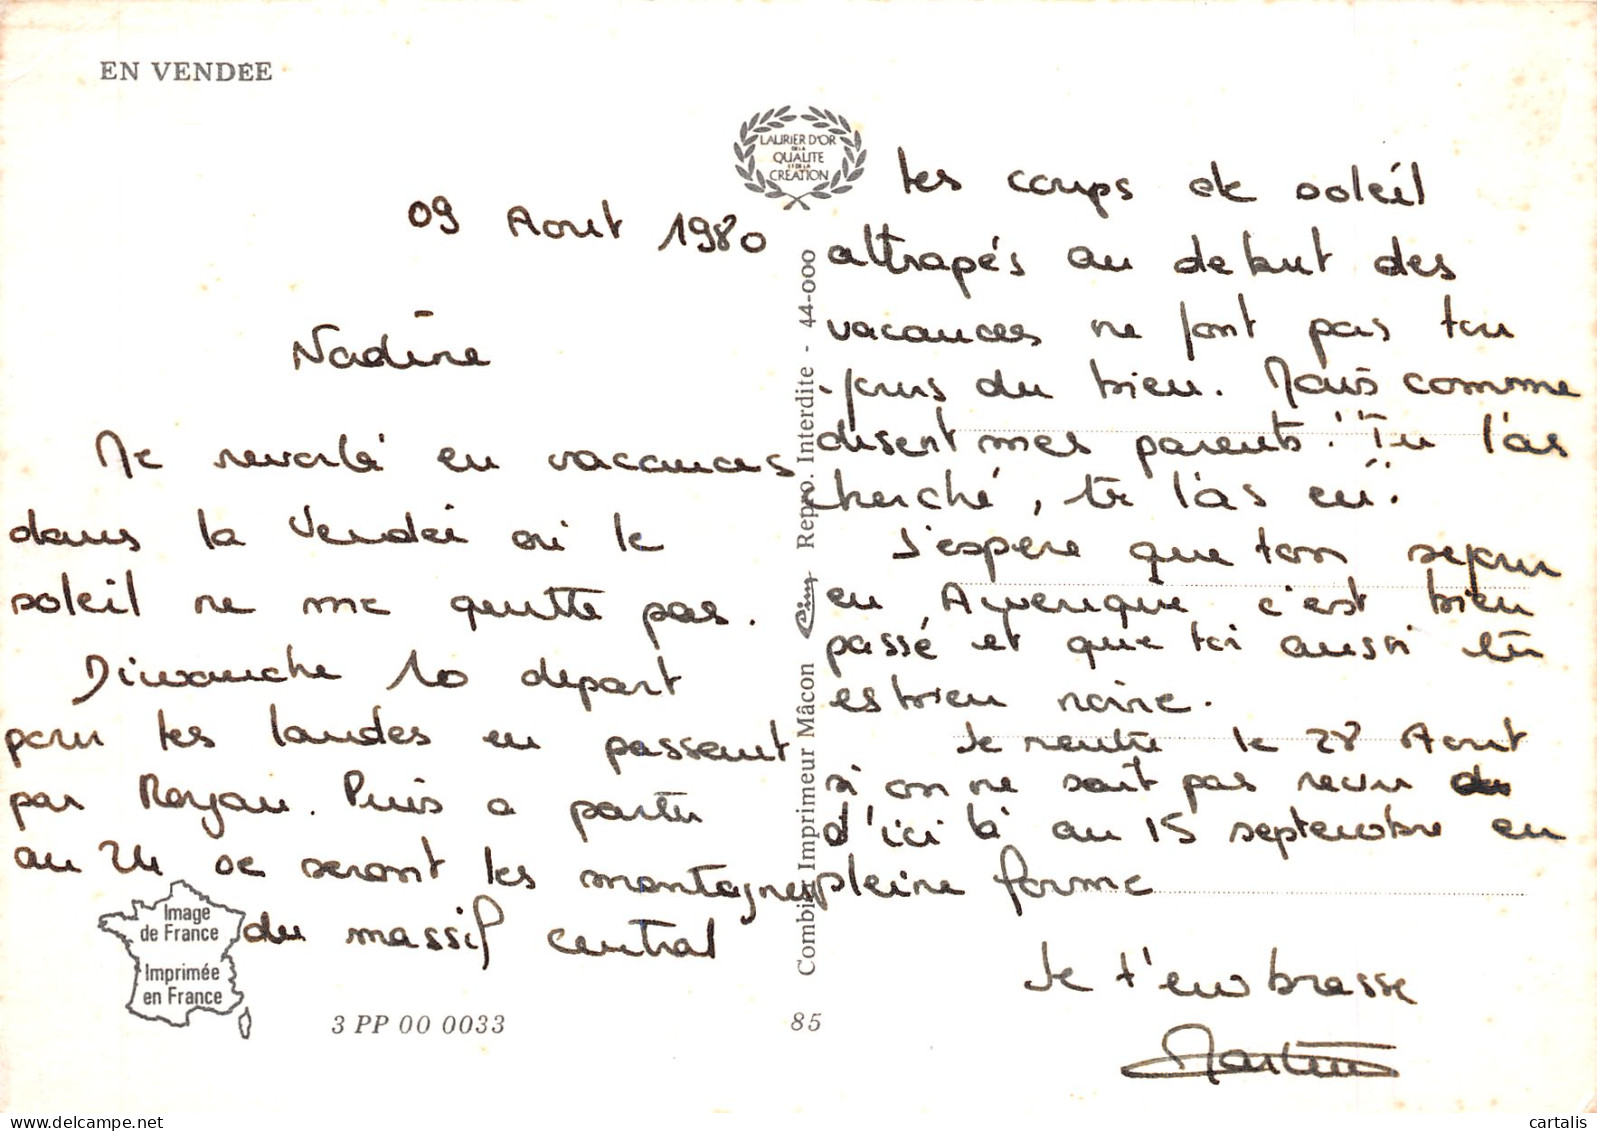 EN VENDÉE
09 Aout 1980
Nadine
Me revoilà en vacances
dans la Vendée où le
soleil ne me quitte pas.
Dimanche 10 depart
pour les landes en passant
par Royan. Puis a partir
au 24 ce seront les montagnes
du massif central
LAURIER D'OR
DE LA
QUALITE
ET DE LA
CREATION
les coups de soleil
attrapés au debut des
vacances ne font pas tou
-jours du bien. Mais comme
disent mes parents "Tu l'as
cherché, tu l'as eu".
J'espère que ton sejour
en Auvergne c'est bien
passé et que toi aussi tu
es bien noire.
Je rentre le 28 Aout
si on ne sait pas revu
d'ici là au 15 septembre en
pleine forme
Je t'embrasse
Combier Imprimeur Mâcon Cim Repro. Interdite - 44-000
Image
de France
Imprimée
en France
3 PP 00 0033
85
cartalis